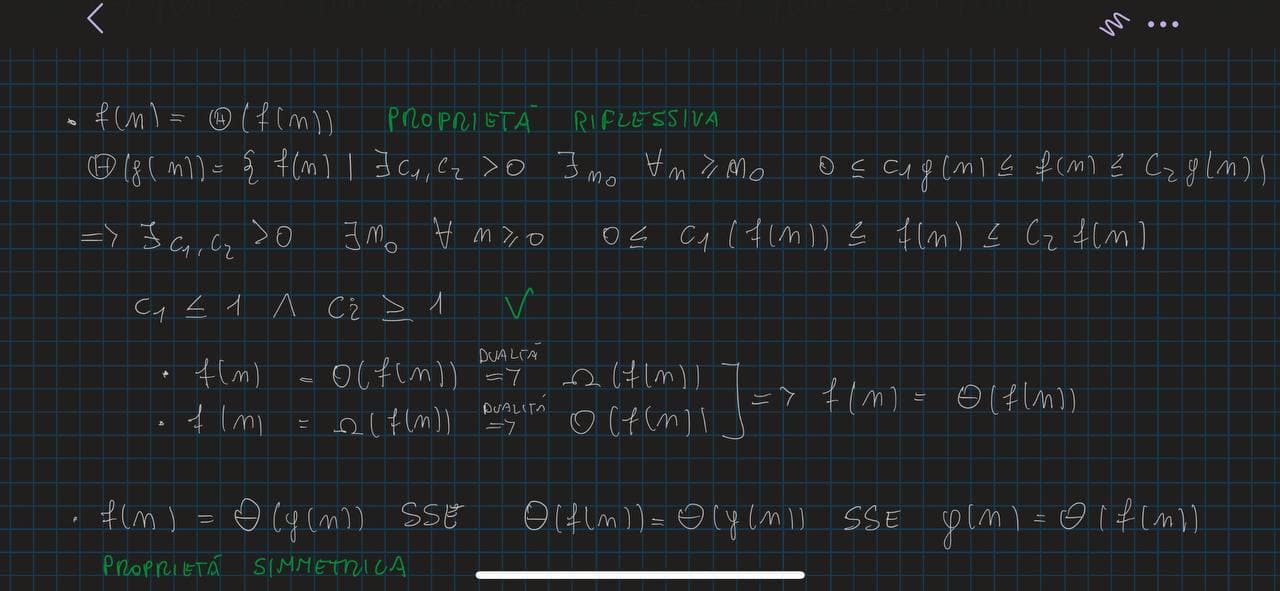 • f(n) = Θ(f(n)) PROPRIETÀ RIFLESSIVA
Θ(g(n)) = { f(n) | ∃ c₁, c₂ > 0 ∃ n₀ ∀ n ≥ n₀ 0 ≤ c₁ g(n) ≤ f(n) ≤ c₂ g(n) }
=> ∃ c₁, c₂ > 0 ∃ n₀ ∀ n ≥ 0 0 ≤ c₁ (f(n)) ≤ f(n) ≤ c₂ f(n)
c₁ ≤ 1 ∧ c₂ ≥ 1 √
• f(n) = O(f(n)) DUALITÀ => Ω(f(n))
• f(n) = Ω(f(n)) DUALITÀ => O(f(n)) ] => f(n) = Θ(f(n))
• f(n) = Θ(g(n)) SSE Θ(f(n)) = Θ(g(n)) SSE g(n) = Θ(f(n))
PROPRIETÀ SIMMETRICA